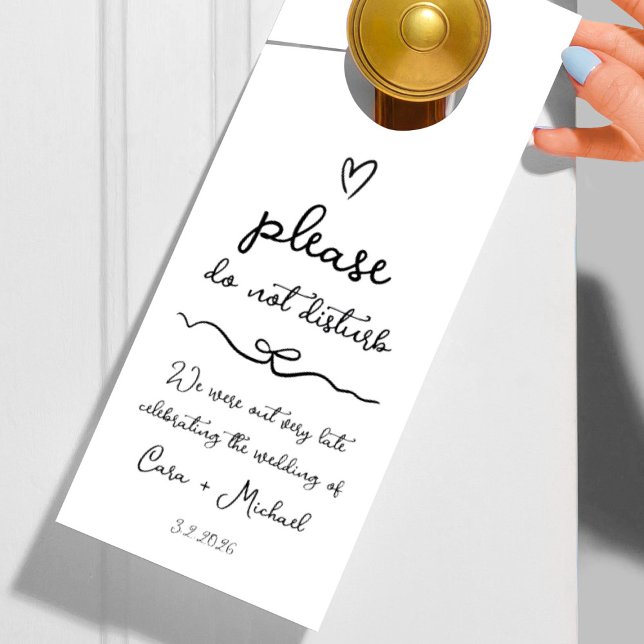 please
do not disturb
We were out very late
celebrating the wedding of
Cara + Michael
3.2.2026